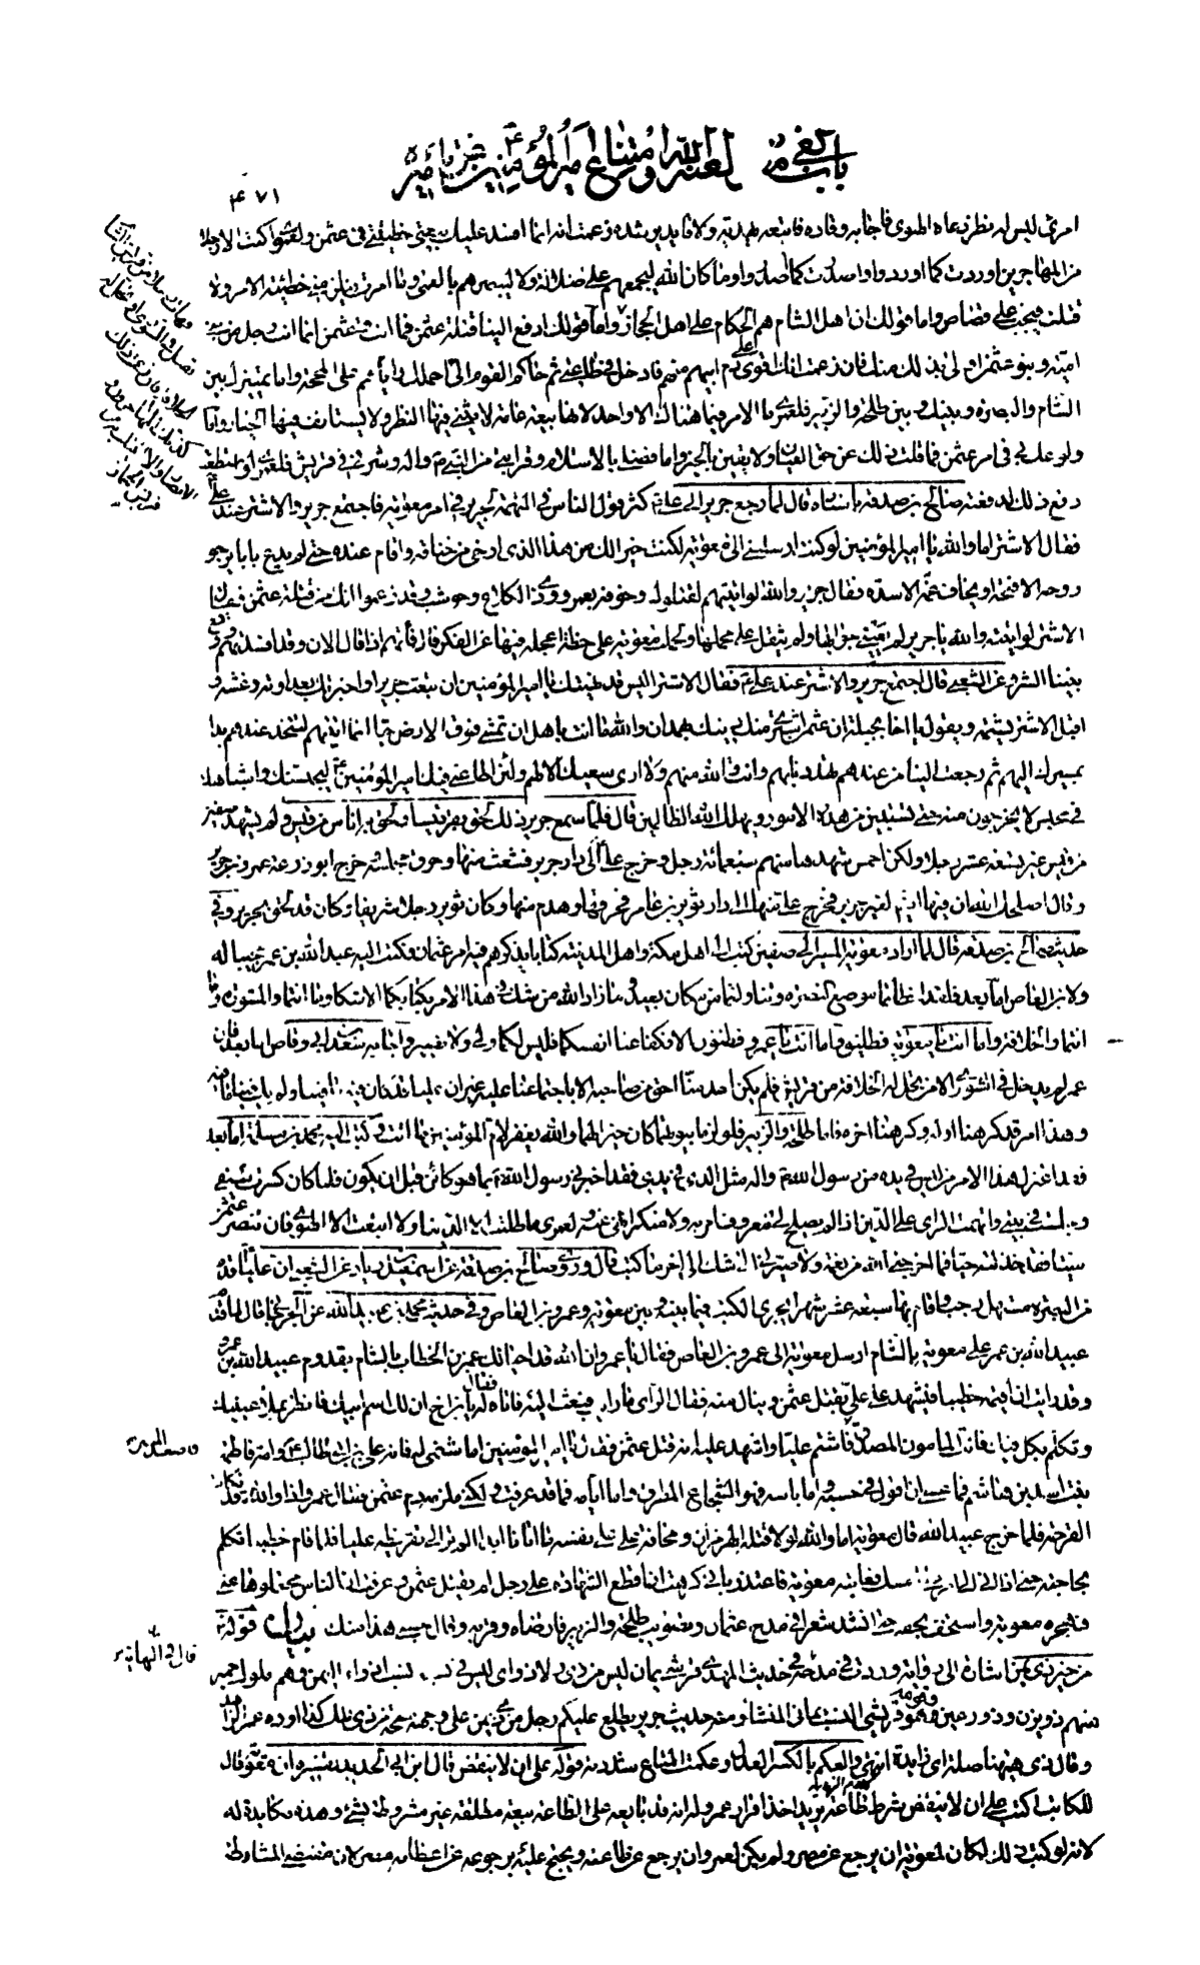 باب بغي معوية لعنه الله وامتناع أمير المؤمنين عن تأميره
٤٧١
امرئ ليس له نظر دعاه الهوى فأجابه وقاده فاتبعه زعمت أنه إنما أفسد عليك بيعتي خطيئتي في عثمن ولعمري ما كنت إلا رجلا
من المهاجرين أوردت كما أوردوا وأصدرت كما أصدروا وما كان الله ليجمعهم على ضلالة ولا ليضربهم بالعمى وما أمرت فيلزمني خطيئة الأمر ولا
قتلت فيجب علي قصاص وأما قولك ان اهل الشام هم الحكام على اهل الحجاز وأما قولك ادفع الينا قتلة عثمن فما انت وعثمن انما انت رجل من بني
امية وبنو عثمن اولى بذلك منك فان زعمت انك اقوى على دم ابيهم منهم فادخل في طاعتي ثم حاكم القوم الي احملك واياهم على المحجة واما تمييزك بين
الشام والبصرة وبينك وبين طلحة والزبير فلعمري ما الامر فيما هناك الا واحد لانها بيعة عامة لا يثنى فيها النظر ولا يستانف فيها الخيار واما
ولوعك بي في امر عثمن فما قلت ذلك عن حق العيان ولا يقين الخبر واما فضلي بالاسلام وقرابتي من النبي وآله وشرفي في قريش فلعمري لو استطعت
دفع ذلك لدفعته صالح بن صدقة باسناده قال لما رجع جرير الى علي كثر قول الناس في التهمة لجرير في امر معوية فاجتمع جرير والاشتر عند علي
فقال الاشتر اما والله يا امير المؤمنين لو كنت ارسلتني الى معوية لكنت خيرا لك من هذا الذي ارخى من خناقه واقام عنده حتى لم يدع بابا يرجو
روحه الا فتحه او يخاف غمه الا سده فقال جرير والله لو اتيتهم لقتلوك وخوفه بعمرو وذي الكلاع وحوشب وقد زعموا انك من قتلة عثمن فقال
الاشتر لو اتيته والله يا جرير لم يعيني جوابها ولم يثقل علي محملها ولحملت معوية على خطة اعجله فيها عن الفكر قال فأتهم اذا قال الان وقد افسدتهم ووقع
بيننا الشر وعن الشعبي قال اجتمع جرير والاشتر عند علي فقال الاشتر اليس قد نهيتك يا امير المؤمنين ان تبعث جريرا واخبرتك بعداوته وغشه و
اقبل الاشتر يشتمه ويقول يا اخا بجيلة ان عثمن اشترى منك دينك بهمدان والله ما انت باهل ان تمشي فوق الارض حيا انما اتيتهم لتتخذ عندهم يدا
بمسيرك اليهم ثم رجعت الينا من عندهم تهددنا بهم وانت والله منهم ولا ارى سعيك الا لهم ولئن اطاعني فيك امير المؤمنين ليحبسنك واشباهك
في محبس لا يخرجون منه حتى تستبين هذه الامور ويهلك الله الظالمين قال فلما سمع جرير ذلك لحق بقرقيسا ولحق به اناس من قيس ولم يشهد صفين
من قيس غير تسعة عشر رجلا ولكن احمس شهدها منهم سبعمائة رجل وخرج علي الى دار جرير فشعث منها وحرق مجلسه خرج ابو زرعة عمرو بن جرير
وقال اصلحك الله ان فيها ارضا لغير جرير فخرج علي منها الى دار ثوير بن عامر فحرقها وهدم منها وكان ثوير رجلا شريفا وكان قد لحق بجرير وفي
حديث صالح بن صدقة قال لما اراد معوية المسير الى صفين كتب الى اهل مكة واهل المدينة كتابا يذكرهم فيه امر عثمان فكتب اليه عبدالله بن عمر مجيبا له
ولابن العاص اما بعد فلقد اخطأتما موضع النصرة وتناولتماها من مكان بعيد وما زاد الله من شك في هذا الامر بكتابكما الا شكا وما انتما والمشورة وما
انتما والخلافة واما انت يا معوية فطليق واما انت يا عمرو فظنون الا فكفا عنا انفسكما فليس لكما ولي ولا نصير واجابه سعد بن ابي وقاص اما بعد فان
عمر لم يدخل في الشورى الا من تحل له الخلافة من قريش فلم يكن احد منا احق من صاحبه الا باجتماعنا عليه غير ان عليا قد كان فيه ما فينا ولم يك فينا ما فيه
وهذا امر قد كرهنا اوله وكرهنا اخره فاما طلحة والزبير فلو لزما بيوتهما كان خيرا لهما والله يغفر لام المؤمنين ما اتت وكتب اليه محمد بن مسلمة اما بعد
فقد اعتزل هذا الامر من ليس في يده من رسول الله وآله مثل الذي في يدي فقد اخبرني رسول الله بما هو كائن قبل ان يكون فلما كان كسرت سيفي
وجلست في بيتي واتهمت الراي على الدين اذ لم يصلح لي معروف آمر به ولا منكر انهى عنه ولعمري ما طلبت الا الدنيا ولا اتبعت الا الهوى فان تنصر عثمن
ميتا فقد خذلته حيا فما اخرجني الله من نعمة ولا صيرني الى شك الى اخر ما كتب قال وروى صالح بن صدقة عن اسمعيل بن زياد عن الشعبي ان عليا قدم
من البصرة مستهل رجب واقام بها سبعة عشر شهرا يجري الكتب فيما بينه وبين معوية وعمرو بن العاص وفي حديث محمد بن عبيدالله عن الجرجاني قال لما قدم
عبيدالله بن عمر على معوية بالشام ارسل معوية الى عمرو بن العاص فقال يا عمرو ان الله قد احيا لك عمر بن الخطاب بالشام بقدوم عبيد الله بن عمر
وقد رايت ان اقيمه خطيبا فيشهد على علي بقتل عثمن وينال منه فقال الراي ما رايت فبعث اليه فاتاه فقال له يا بن اخي ان لك اسم ابيك فانظر بملء عينيك
وتكلم بكل فيك فانت المامون المصدق فاشتم عليا واشهد عليه انه قتل عثمن فقال يا امير المؤمنين اما شتمي له فانه علي بن ابي طالب وامه فاطمة
بنت اسد بن هاشم فما عسى ان اقول في حسبه واما باسه فهو الشجاع المطرق واما ايامه فما قد عرفت ولكني ملزمه دم عثمن فقال عمرو اذا والله قد نكات
القرحة فلما خرج عبيد الله قال معوية اما والله لولا قتله الهرمزان ومخافة علي على نفسه ما اتانا ابدا الم تر الى تقريظه عليا فلما قام خطيبا تكلم
بحاجته حتى اذا اتى الى امر علي امسك فعاتبه معوية فاعتذر باني كرهت ان اقطع الشهادة على رجل لم يقتل عثمن وعرفت ان الناس محتملوها عني
فهجره معوية واستخف بحقه حتى انشد شعرا في مدح عثمان وتصويب طلحة والزبير فارضاه وقربه وقال حسبي هذا منك بيان قوله
من خير ذي يمن اشارة الى ما ورد في مدحه في حديث المهدي قرشي يمان ليس من ذي ولا ذو اي ليس نسبه نسب اذواء اليمن وهم ملوك حمير
منهم ذو يزن وذو رعين وقوله قرشي النسب يماني المنشأ ومنه حديث جرير يطلع عليكم رجل من ذي يمن على وجهه مسحة من ذي ملك كذا اورده عمر الزاهد
وقال ذي ههنا صلة اي زايدة انتهى والعكم بالكسر العدل وعكمت المتاع شددته قوله على ان لا ينقض قال ابن ابي الحديد تفسيره ان معوية قال
للكاتب اكتب على ان لا ينقض شرط طاعة يريد اخذ اقرار عمرو له انه قد بايعه على الطاعة بيعة مطلقة غير مشروطة بشئ وهذه مكايدة له
لانه لو كتب ذلك لكان لمعوية ان يرجع عن مصر ولم يكن لعمرو ان يرجع عن طاعته ويحتج عليه برجوعه عن اعطائه مصر لان مقتضى المشارطة
قال في النهاية